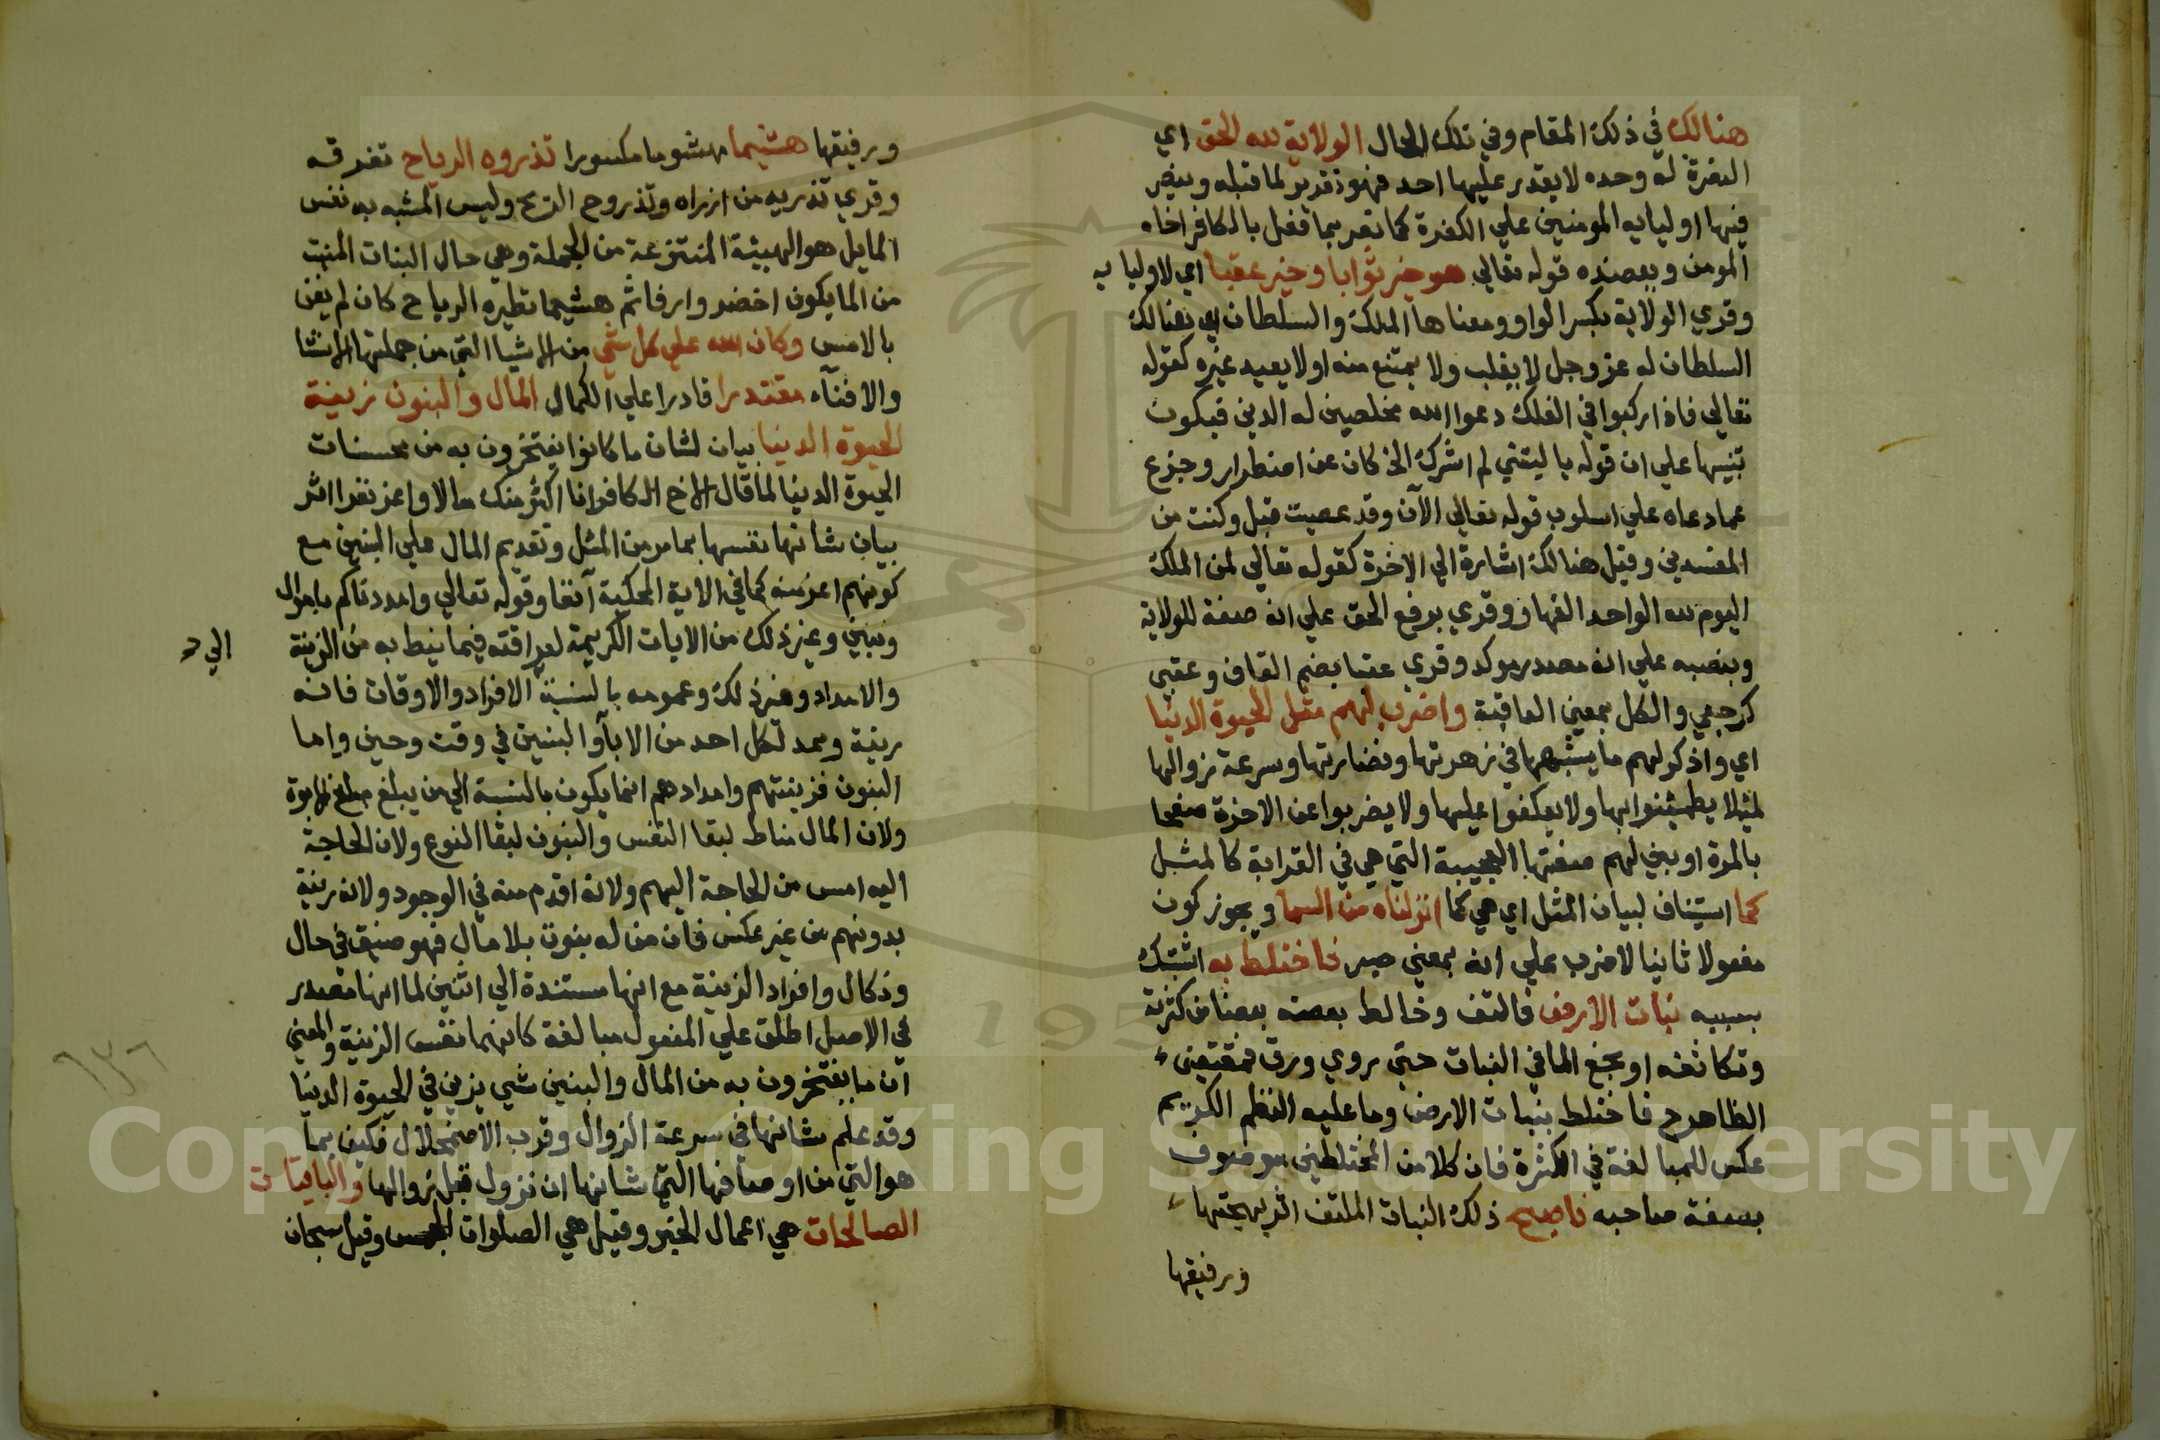 هنالك في ذلك المقام وفي تلك الحال الولاية لله الحق اي
النصرة له وحده لا يقدر عليها احد فهو تقرير لما قبله وينصر
فيها اوليايه المومنين علي الكفرة كما نصر بما فعل بالكافر اخاه
المومن ويعضده قوله تعالي هو خير ثوابا وخير عقبا اي لاوليا يه
وقري الولاية بكسر الواو ومعناها الملك والسلطان اي هنالك
السلطان له عز وجل لا يغلب ولا يمتنع منه او لا يعبد غيره كقوله
تعالي فاذا ركبوا في الفلك دعوا الله مخلصين له الدين فيكون
تنبيها علي ان قوله ياليتني لم اشرك الخ كان عن اضطرار وجزع
عما دهاه علي اسلوب قوله تعالي الآن وقد عصيت قبل وكنت من
المفسدين وقيل هنالك اشارة الي الاخرة كقوله تعالي لمن الملك
اليوم لله الواحد القهار وقري برفع الحق علي انه صفة للولاية
وبنصبه علي انه مصدر موكد وقري عقبا بضم القاف وعقبي
كرجعي والكل بمعني العاقبة واضرب لهم مثل الحيوة الدنيا
اي واذكر لهم ما يشبهها في زهرتها ونضارتها وسرعة زوالها
لئلا يطمئنوا بها ولا يعكفوا عليها ولا يضربوا عن الاخرة صفحا
بالمرة او بين لهم صفتها العجيبة التي هي في الغرابة كالمثل
كما استيناف لبيان المثل اي هي كما انزلناه من السما ويجوز كون
مفعولا ثانيا لاضرب علي انه بمعني صير فاختلط به اشتبك
بسببه نبات الارض فالتف وخالط بعضه بعضا من كثرته
وتكاثفه او نجع الما في النبات حتي روي ورق فمقتضي
الظاهرح فاختلط بنبات الارض وما عليه النظم الكريم
عكس للمبالغة في الكثرة فان كلا من المختلطين موصوف
بصفة صاحبه فاصبح ذلك النبات الملتف اثر بهجتها
ورفيقها
ورفيقها هشيما مهشوما مكسورا تذروه الرياح تفرقه
وقري تذريه من اذراه وتذروح الريح وليس المشبه به نفس
المابل هو الهيئة المنتزعة من الجملة وهي حال النبات المنبت
من الما يكون اخضر وارفا ثم هشيما تطيره الرياح كان لم يغن
بالامس وكان الله علي كل شي من الاشيا التي من جملتها الانشا
والافنآء مقتدرا قادرا علي الكمال المال والبنون زينة
الحيوة الدنيا بيان لشان ما كانوا يفتخرون به من محسنات
الحيوة الدنيا لما قال الاخ الكافر انا اكثر منك مالا واعز نفرا اثر
بيان شانها نفسها بما مر من المثل وتقديم المال علي البنين مع
كونهم اعز منه كما في الاية المحكية آنفا وقوله تعالي وامددناكم باموال
وبنين وغير ذلك من الايات الكريمة لعراقته فيما نيط به من الزينة
والامداد وغير ذلك وعمومه بالنسبة الافراد والاوقات فانه
الي
زينة وممد لكل احد من الابآ والبنين في وقت وحين واما
البنون فزينتهم وامدادهم انما يكون بالنسبة الي من يبلغ مبلغ الابوة
ولان المال مناط لبقا النفس والبنون لبقا النوع ولان الحاجة
اليه امس من الحاجة اليهم ولانه اقدم منه في الوجود ولانه زينة
بدونهم من غير عكس فان من له بنون بلا مال فهو ضيق في حال
ونكال وافراد الزينة مع انها مستندة الي اثنين لما انها مصدر
في الاصل اطلق علي المفعول مبالغة كانهما نفس الزينة والمعني
ان ما يفتخرون به من المال والبنين شي يزين في الحيوة الدنيا
وقد علم شانها في سرعة الزوال وقرب الاضمحلال فكيف بما
هو التي من اوصافها التي شانها ان تزول قبل زوالها والباقيات
الصالحات هي اعمال الخير وقيل هي الصلوات الخمس وقيل سبحان
١٣٦
Copyright © King Saud University
195